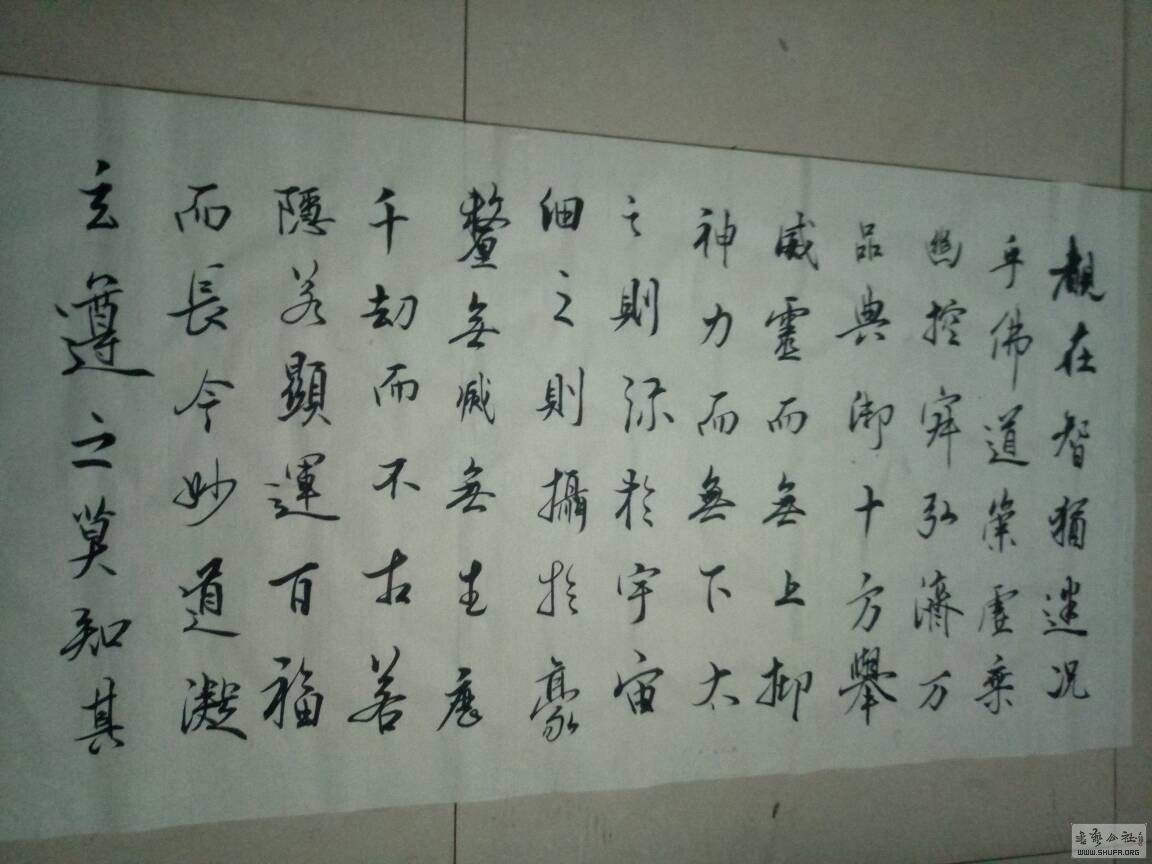 覩在智猶迷况
乎佛道崇虛乘
幽控寂弘濟万
品典御十方舉
威靈而無上抑
神力而無下大
之則弥於宇宙
細之則攝於豪
釐無滅無生歷
千劫而不古若
隱若顯運百福
而長今妙道凝
玄遵之莫知其
书艺公社
WWW.SHUFA.ORG